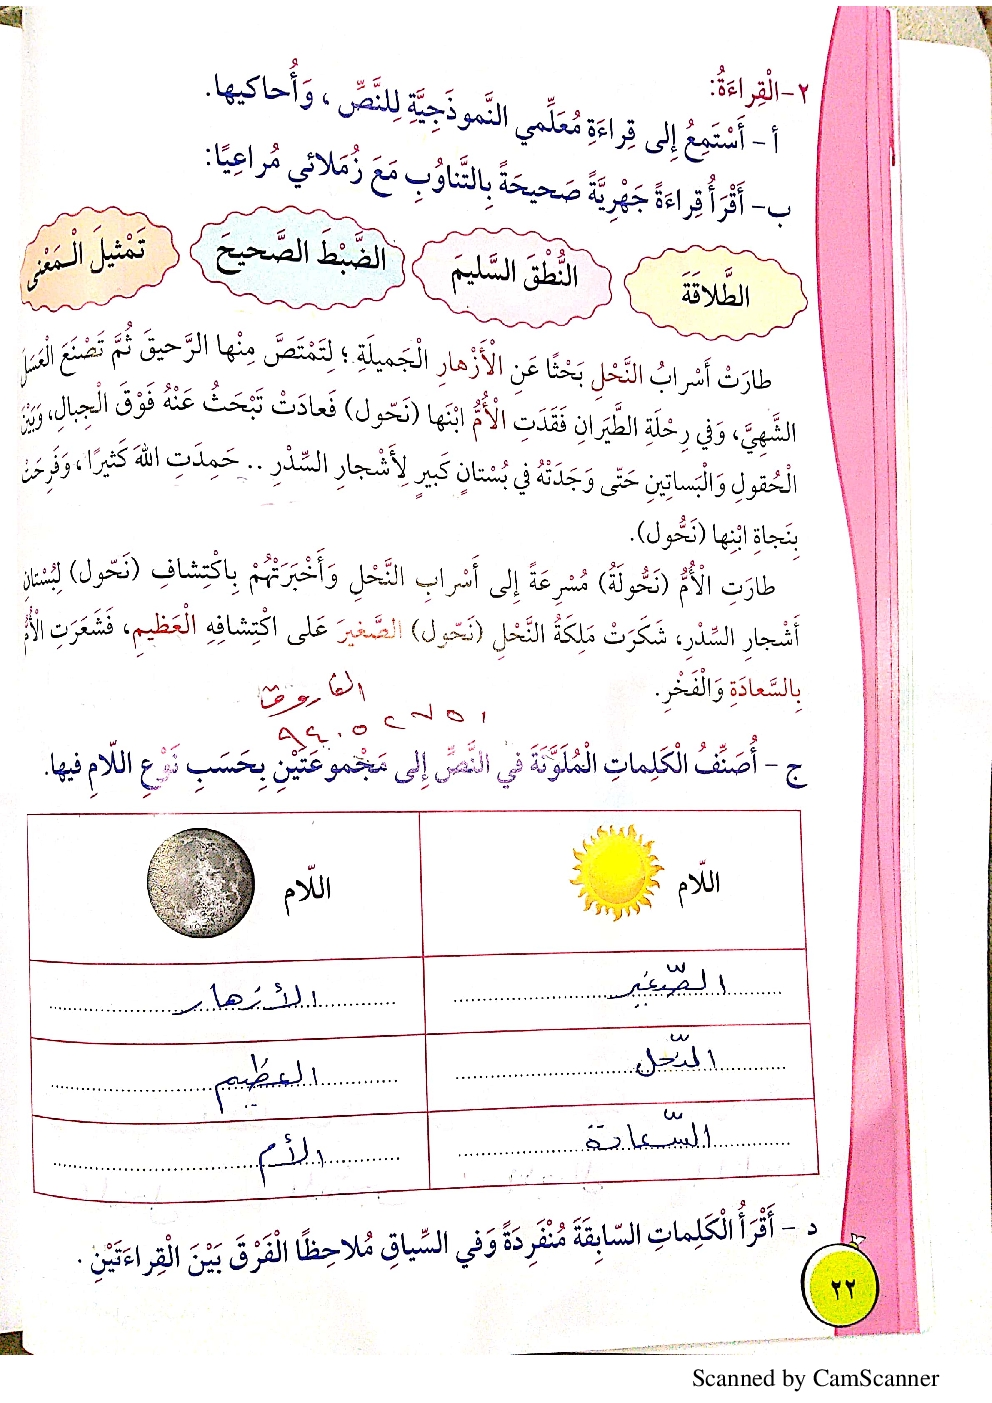 ٢- الْقِراءَةُ:
أ - أَسْتَمِعُ إِلى قِراءَةِ مُعَلِّمي النَّموذَجِيَّةِ لِلنَّصِّ ، وَأُحاكيها.
ب- أَقْرَأُ قِراءَةً جَهْرِيَّةً صَحيحَةً بِالتَّناوُبِ مَعَ زُمَلائي مُراعِيًا:
الطَّلاقَةَ النُّطْقَ السَّليمَ الضَّبْطَ الصَّحيحَ تَمْثيلَ الْمَعْنى
طارَتْ أَسْرابُ النَّحْلِ بَحْثًا عَنِ الْأَزْهارِ الْجَميلَةِ ؛ لِتَمْتَصَّ مِنْها الرَّحيقَ ثُمَّ تَصْنَعَ الْعَسَلَ
الشَّهِيَّ، وَفي رِحْلَةِ الطَّيَرانِ فَقَدَتِ الْأُمُّ ابْنَها (نَحّول) فَعادَتْ تَبْحَثُ عَنْهُ فَوْقَ الْجِبالِ، وَبَيْنَ
الْحُقولِ وَالْبَساتينِ حَتّى وَجَدَتْهُ في بُسْتانٍ كَبيرٍ لِأَشْجارِ السِّدْرِ .. حَمِدَتِ اللهَ كَثيرًا ، وَفَرِحَتْ
بِنَجاةِ ابْنِها (نَحّول).
طارَتِ الْأُمُّ (نَحُّولَةُ) مُسْرِعَةً إِلى أَسْرابِ النَّحْلِ وَأَخْبَرَتْهُمْ بِاكْتِشافِ (نَحّول) لِبُسْتانِ
أَشْجارِ السِّدْرِ، شَكَرَتْ مَلِكَةُ النَّحْلِ (نَحّول) الصَّغيرَ عَلى اكْتِشافِهِ الْعَظيمِ، فَشَعَرَتِ الْأُمُّ
بِالسَّعادَةِ وَالْفَخْرِ.
الفاروق
٩٤٠٥٢٧٥١
ج - أُصَنِّفُ الْكَلِماتِ الْمُلَوَّنَةَ في النَّصِّ إِلى مَجْموعَتَيْنِ بِحَسَبِ نَوْعِ اللّامِ فيها.
اللّام اللّام
الصّغير الأزهار
النّحل العظيم
السّعادة الأم
د - أَقْرَأُ الْكَلِماتِ السّابِقَةَ مُنْفَرِدَةً وَفي السِّياقِ مُلاحِظًا الْفَرْقَ بَيْنَ الْقِراءَتَيْنِ .
٢٢
Scanned by CamScanner